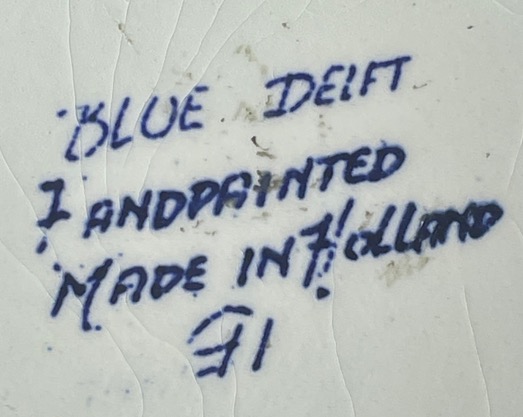 BLUE DELFT
HANDPAINTED
MADE IN HOLLAND